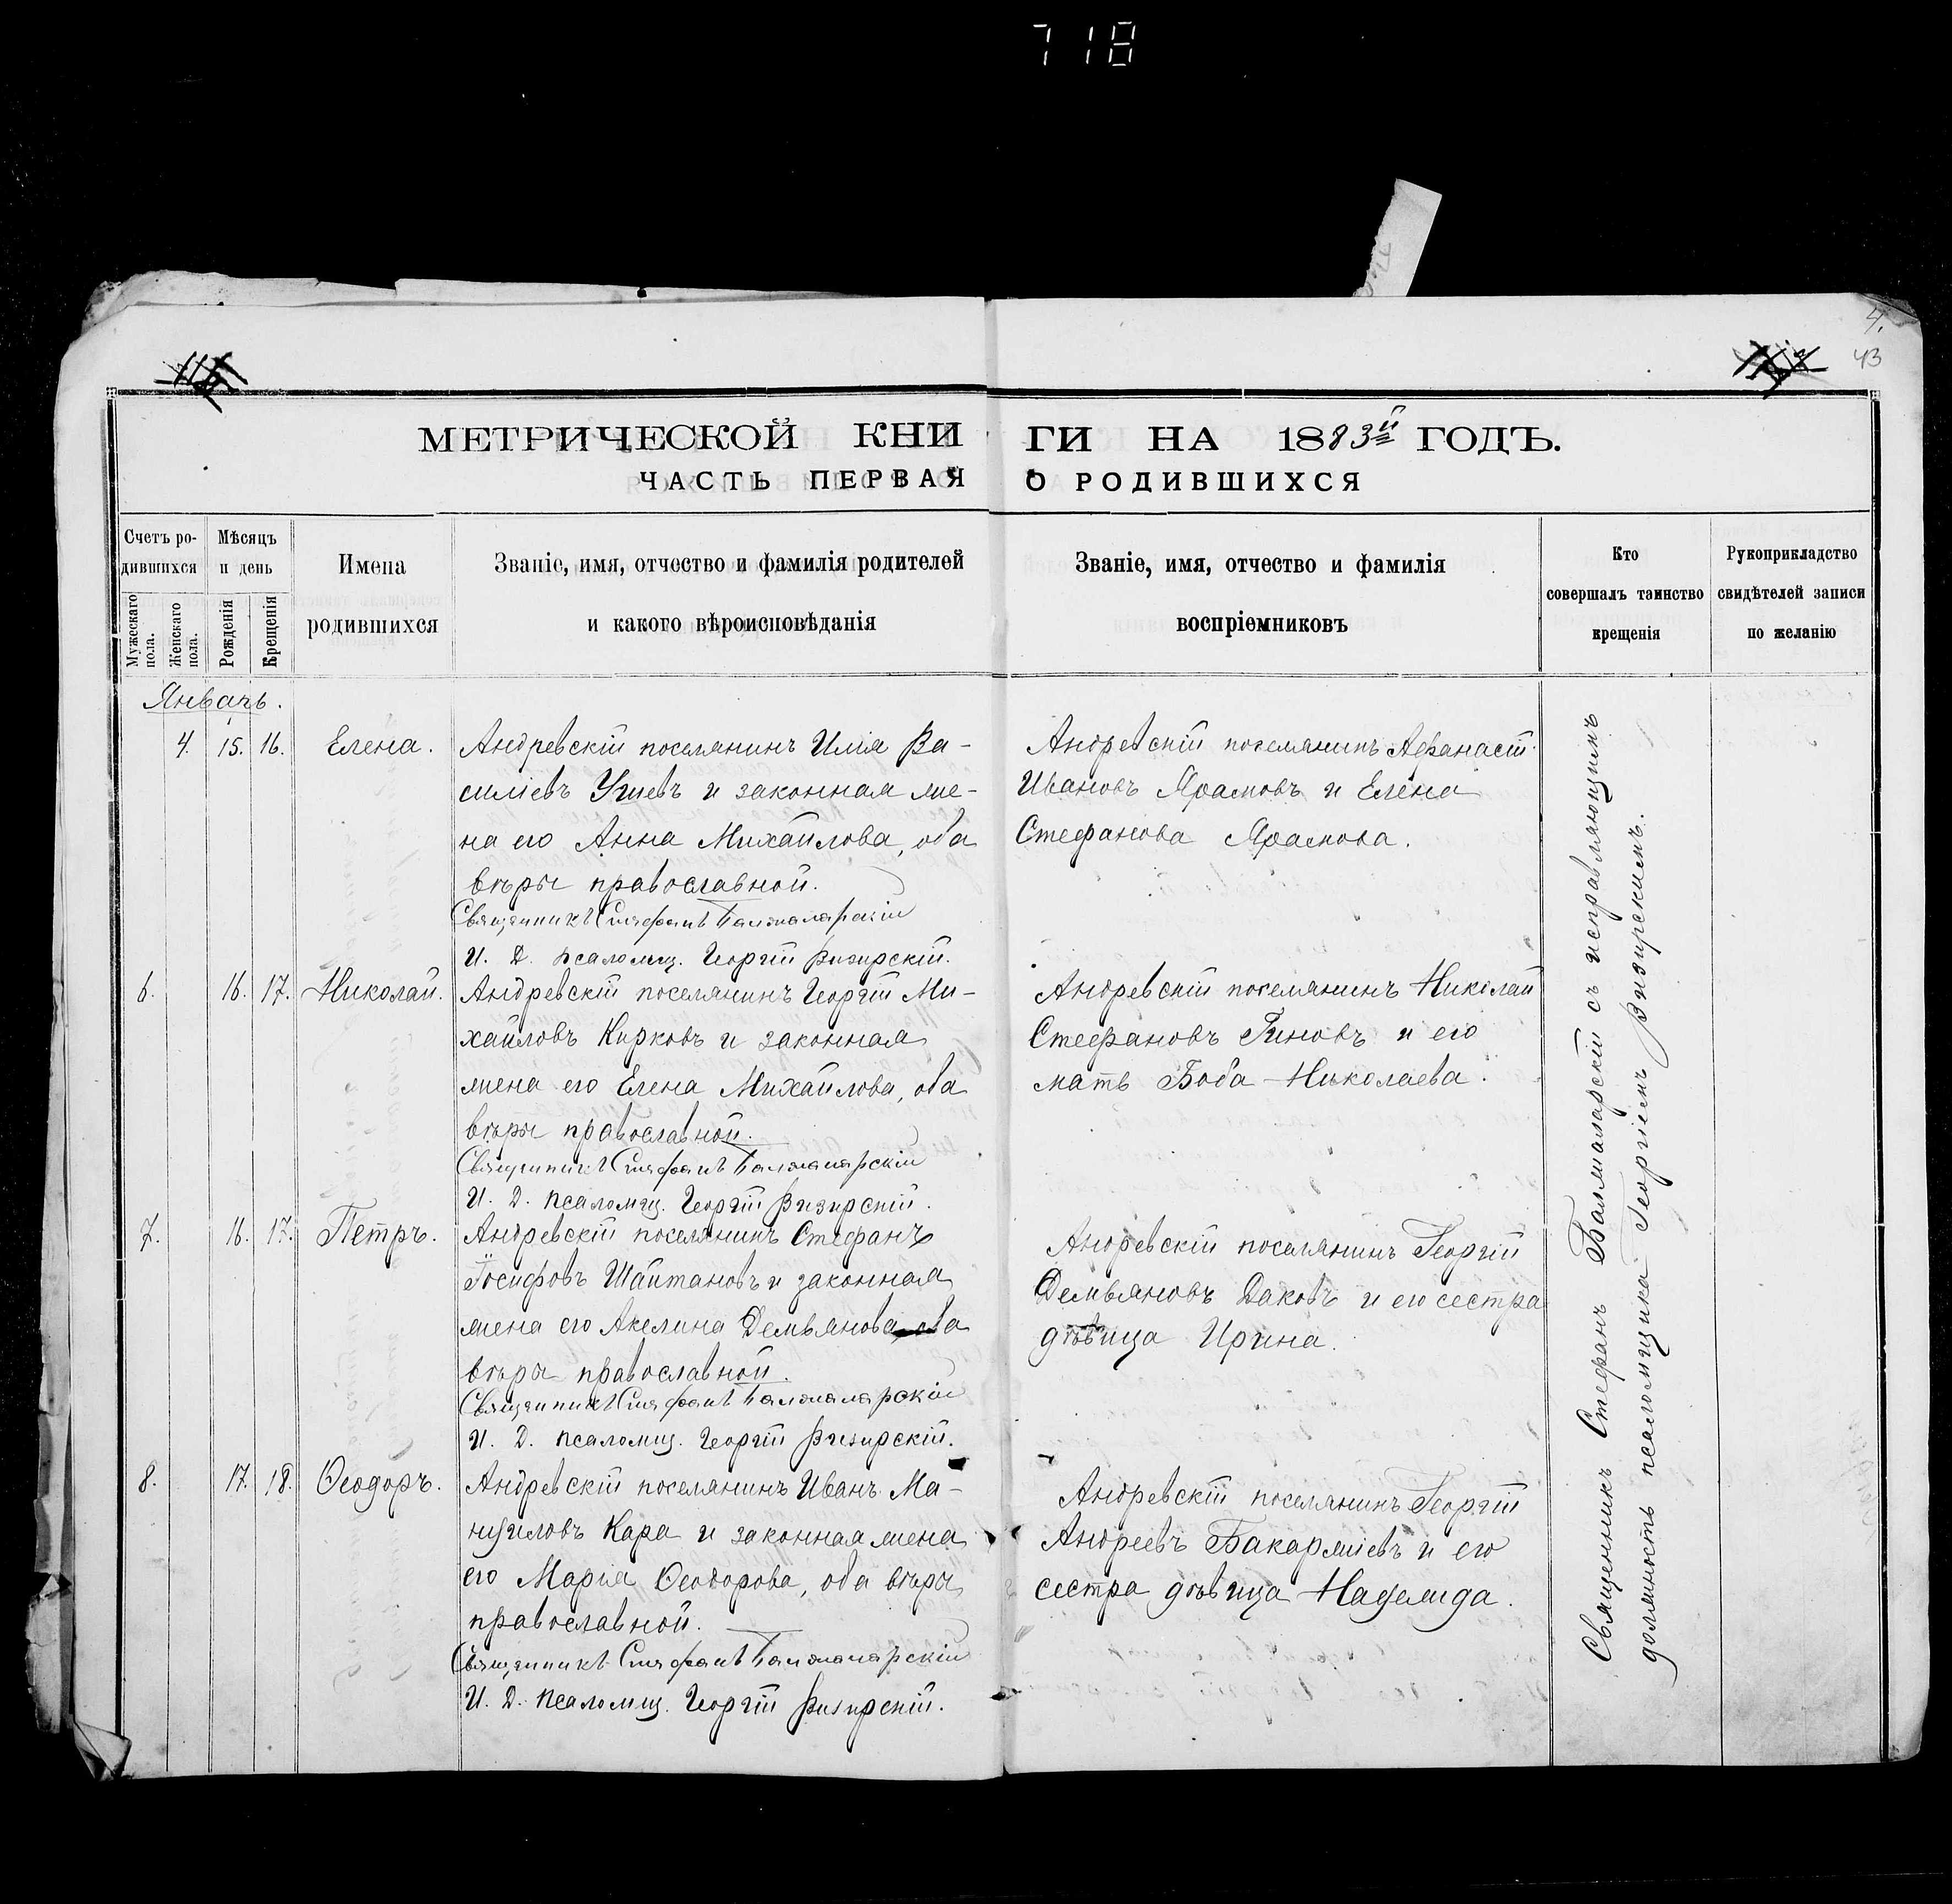 718
4.
43
МЕТРИЧЕСКОЙ КНИГИ НА 1883й ГОДЪ.
ЧАСТЬ ПЕРВАЯ О РОДИВШИХСЯ
Счетъ ро-
дившихся
Мужескаго
пола.
Женскаго
пола.
Мѣсяцъ
и день
Рожденія
Крещенія
Имена
родившихся
Званіе, имя, отчество и фамилія родителей
и какого вѣроисповѣданія
Званіе, имя, отчество и фамилія
воспріемниковъ
Кто
совершалъ таинство
крещенія
Рукоприкладство
свидѣтелей записи
по желанію
Январь.
4. 15. 16. Елена.
Андревскій поселянинъ Илія Ва-
силіевъ Узневъ и законная же-
на его Анна Михайлова, оба
вѣры православной.
Священникъ Стефанъ Балжаларскій
И. Д. псаломщ. Георгій Визирскій.
Андревскій поселянинъ Афанасій
ИвановъЯрамовъ и Елена
Стефанова Ярамова.
6. 16. 17. Николай.
Андревскій поселянинъ Георгій Ми-
хайловъ Кирковъ и законная
жена его Елена Михайлова, оба
вѣры православной.
Священникъ Стефанъ Балжаларскій
И. Д. псаломщ. Георгій Визирскій.
Андревскій поселянинъ Николай
Стефановъ Гиновъ и его
мать Боба Николаева.
7. 16. 17. Петръ.
Андревскій поселянинъ Стефанъ
Іосифовъ Шайтановъ и законная
жена его Акелина Демьянова оба
вѣры православной.
Священникъ Стефанъ Балжаларскій
И. Д. псаломщ. Георгій Визирскій.
Андревскій поселянинъ Георгій
Демьяновъ Даковъ и его сестра
дѣвица Ирина.
8. 17. 18. Ѳеодоръ.
Андревскій поселянинъ Иванъ Ма-
нуиловъ Кара и законная жена
его Марія Ѳеодорова, оба вѣры
православной.
Священникъ Стефанъ Балжаларскій
И. Д. псаломщ. Георгій Визирскій.
Андревскій поселянинъ Георгій
Андреевъ Бакаржіевъ и его
сестра дѣвица Надежда.
Священникъ Стефанъ Балжаларскій съ исправляющимъ
должность псаломщика Георгіемъ Визирскимъ.